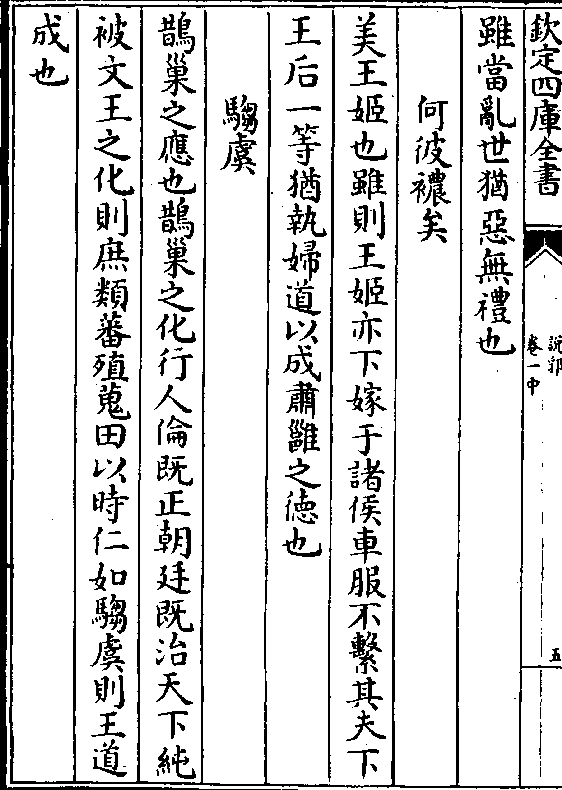 欽定四庫全書
說郛
卷一中
五
雖當亂世猶惡無禮也
何彼襛矣
美王姬也雖則王姬亦下嫁于諸侯車服不繫其夫下
王后一等猶執婦道以成肅雝之徳也
騶虞
鵲巢之應也鵲巢之化行人倫既正朝廷既治天下純
被文王之化則庶類蕃殖蒐田以時仁如騶虞則王道
成也